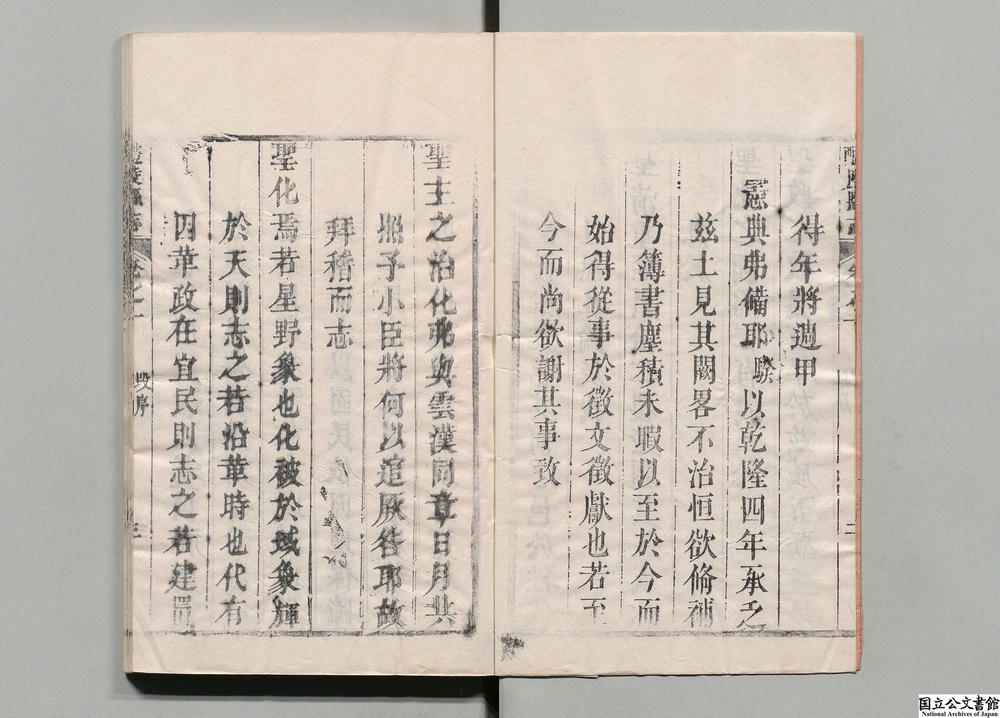 得年將過甲
憲典弗備耶 驥 以乾隆四年承乏
茲土見其闕畧不治恒欲脩補
乃簿書塵積未暇以至於今而
始得從事於徵文徵獻也若至
今而尚欲謝其事致
聖主之治化弗與雲漢同章日月共
照子小臣將何以逭厥咎耶故
拜稽而志
聖化焉若星野象也化被於域象輝
於天則志之若沿革時也代有
因革政在宜民則志之若建置
醴陵縣志
卷之一
序
三
国立公文書館
National Archives of Japan